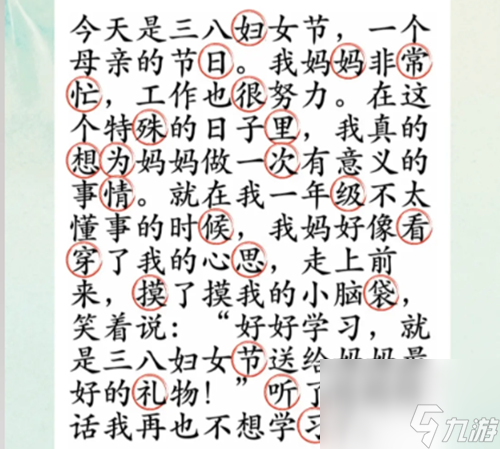 今天是三八妇女节，一个
母亲的节日。我妈妈非常
忙，工作也很努力。在这
个特殊的日子里，我真的
想为妈妈做一次有意义的
事情。就在我一年级不太
懂事的时候，我妈好像看
穿了我的心思，走上前
来，摸了摸我的小脑袋，
笑着说：“好好学习，就
是三八妇女节送给妈妈最
好的礼物！”听了
话我再也不想学习
九游